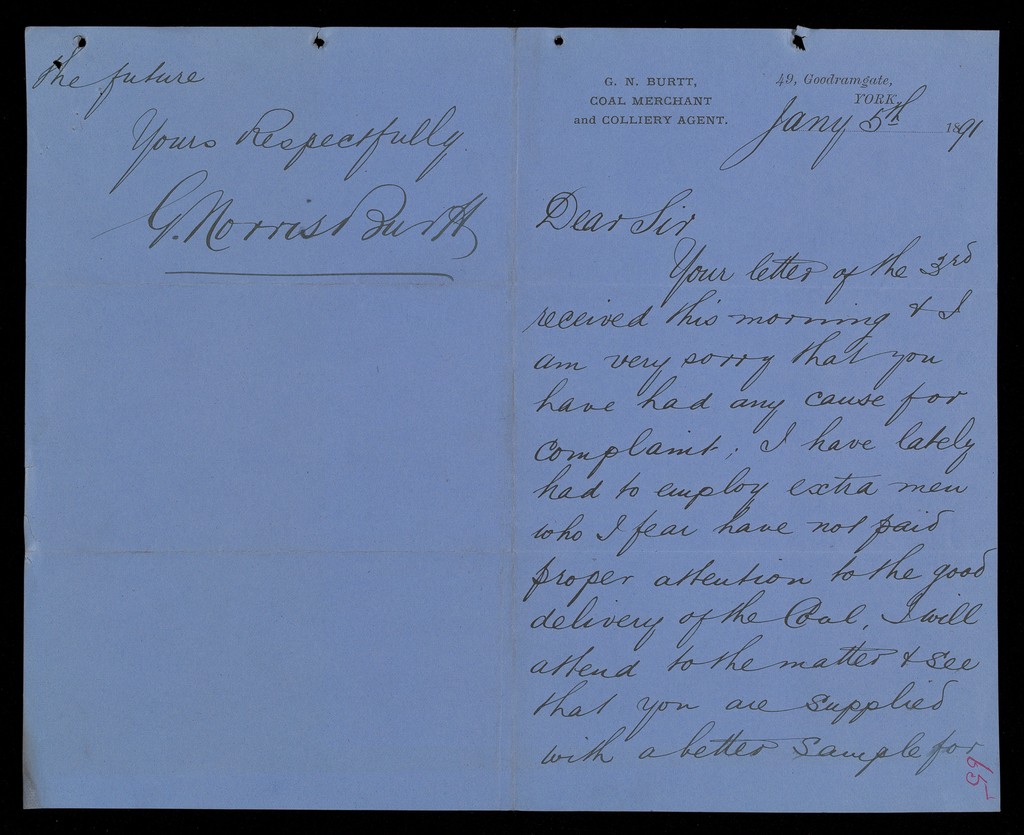 G. N. BURTT,
COAL MERCHANT
and COLLIERY AGENT.
49, Goodramgate,
YORK,
Jany 5th 1891
Dear Sir
Your letter of the 3rd
received this morning & I
am very sorry that you
have had any cause for
complaint; I have lately
had to employ extra men
who I fear have not paid
proper attention to the good
delivery of the Coal, I will
attend to the matter & see
that you are supplied
with a better sample for
the future
Yours Respectfully
G. Norris Burtt